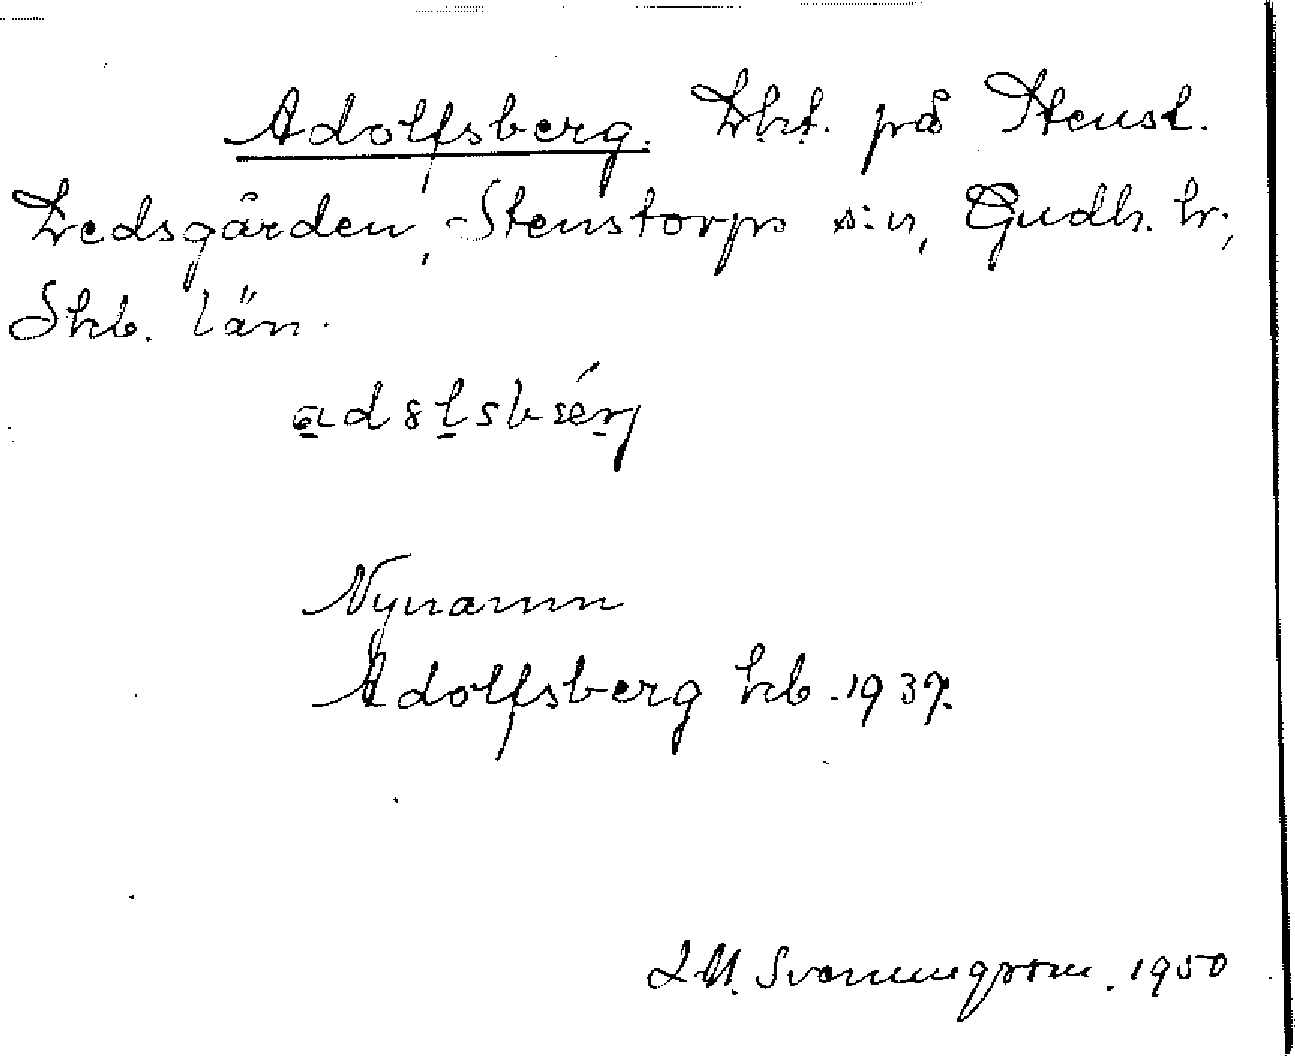 Adolfsberg. Lht. på Stenst.
Ledsgården, Stenstorps s:n, Gudh. hr,
Skb. län.
Nynamn
Adolfsberg kb. 1939.
L.M. Svenungsson. 1950